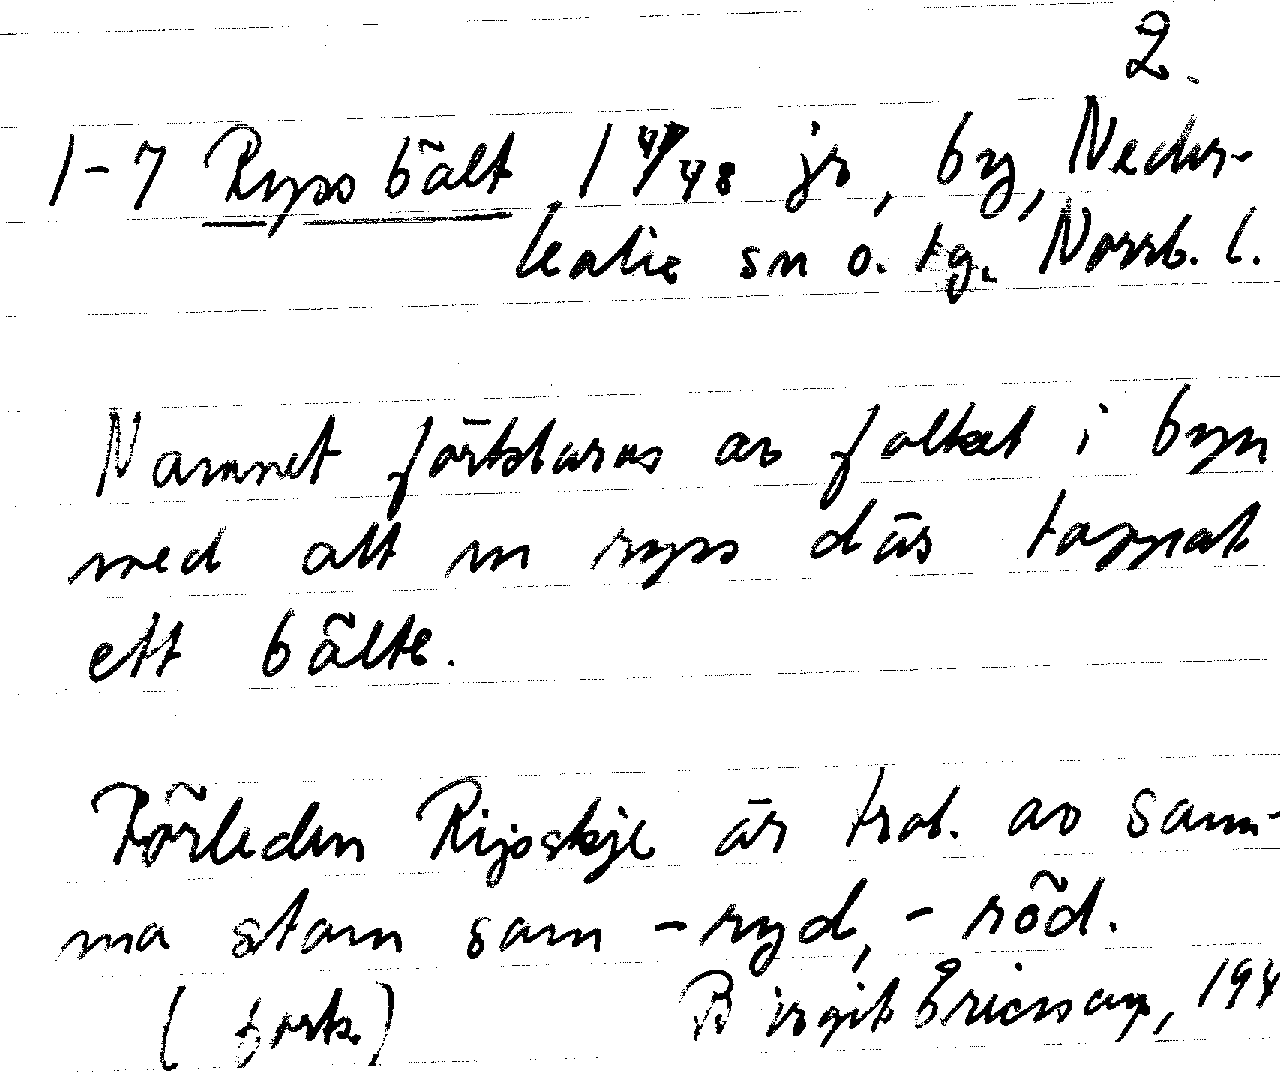 2.
1-7 Ryssbält, 1 47/48 jr, by, Neder-
kalix sn o. tg. Norrb. l.
Namnet förklaras av folket i byn
med att en ryss där tappat
ett bälte.
Förleden Rijsskje är trol. av sam-
ma stam som -ryd, -röd.
(forts.) Birgit Ericsson, 194